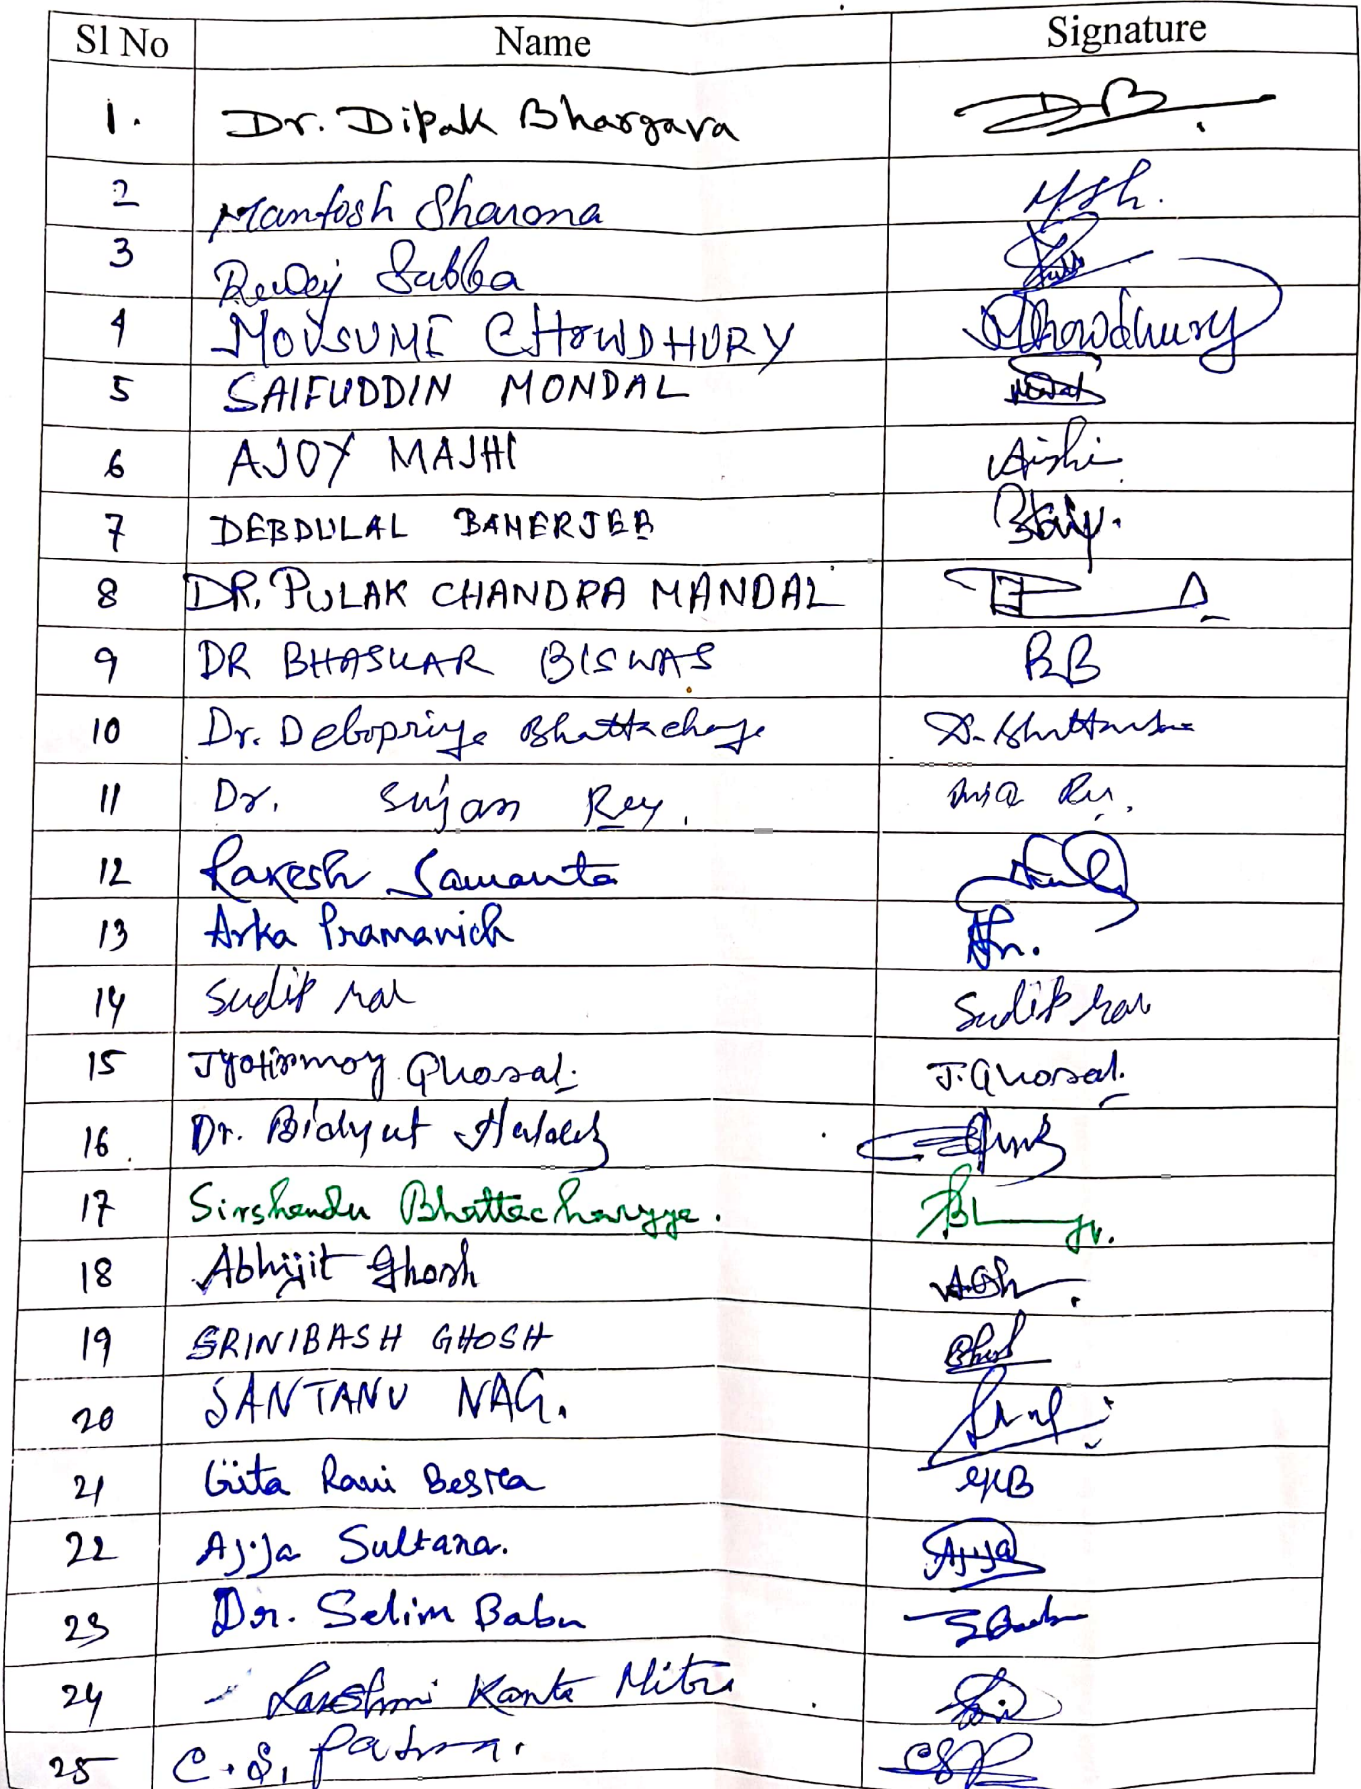 Sl No Name Signature
1. Dr. Dipak Bhargava DB
2 Mantosh Sharma Msh.
3 Subba
4 MOUSUMI CHOWDHURY MChowdhury
5 SAIFUDDIN MONDAL
6 AJOY MAJHI
7 DEBDULAL BANERJEE
8 DR. PULAK CHANDRA MANDAL
9 DR BHASKAR BISWAS BB
10 Dr. Debopriya Bhattacharya D. Bhattacharya
11 Dr. Sujan Roy.
12 Rakesh Samanta
13 Arka Pramanick
14 Sudip kar Sudip kar
15 Jyotirmoy Ghosal. J. Ghosal.
16. Dr. Bidyut Halder
17 Sirshendu Bhattacharyya.
18 Abhijit Ghosh AGsh.
19 SRINIBASH GHOSH Ghosh
20 SANTANU NAG.
21 Gita Rani Besra GRB
22 Ajija Sultana. Ajija
23 Dr. Selim Babu
24 Lakshmi Kanta Mitra
25 C. S. Patra. CSP